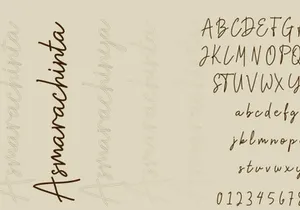 Asmarachinta
Asmarachinta
Asmarachinta
ABCDEFG
JKLMNOPQ
STUVWXY
abcdefg
jklmnop
stuvwy
012345678